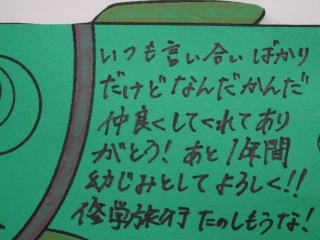 いつも言い合いばかり
だけどなんだかんだ
仲良くしてくれてあり
がとう!あと1年間
幼じみとしてよろしく!!
修学旅行たのしもうな!